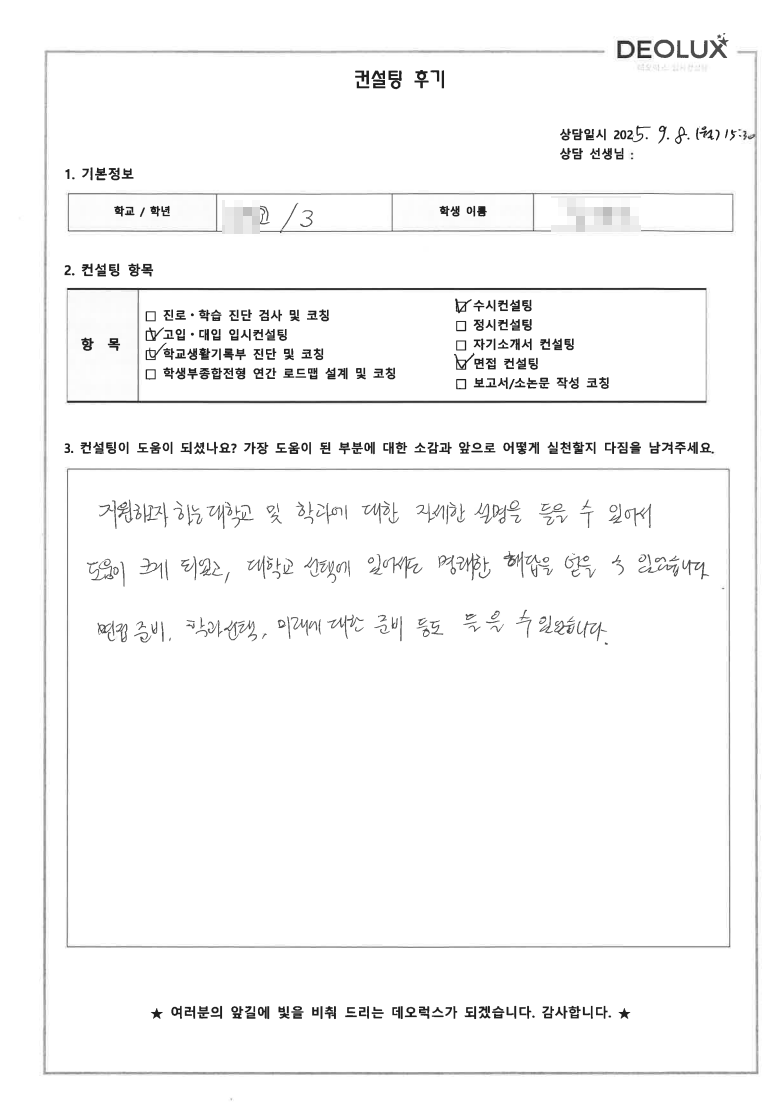 DEOLUX
컨설팅 후기
상담일시 2025. 9. 8. (월) 15:30
상담 선생님 :
1. 기본정보
학교 / 학년 고 / 3 학생 이름
2. 컨설팅 항목
항 목
□ 진로·학습 진단 검사 및 코칭
☑ 고입·대입 입시컨설팅
☑ 학교생활기록부 진단 및 코칭
□ 학생부종합전형 연간 로드맵 설계 및 코칭
☑ 수시컨설팅
□ 정시컨설팅
□ 자기소개서 컨설팅
☑ 면접 컨설팅
□ 보고서/소논문 작성 코칭
3. 컨설팅이 도움이 되셨나요? 가장 도움이 된 부분에 대한 소감과 앞으로 어떻게 실천할지 다짐을 남겨주세요.
지원하고자 하는 대학교 및 학과에 대한 자세한 설명을 들을 수 있어서
도움이 크게 되었고, 대학교 선택에 있어서도 명쾌한 해답을 얻을 수 있었습니다
면접 준비, 학과선택, 미래에 대한 준비 등도 들을 수 있었습니다.
★ 여러분의 앞길에 빛을 비춰 드리는 데오럭스가 되겠습니다. 감사합니다. ★